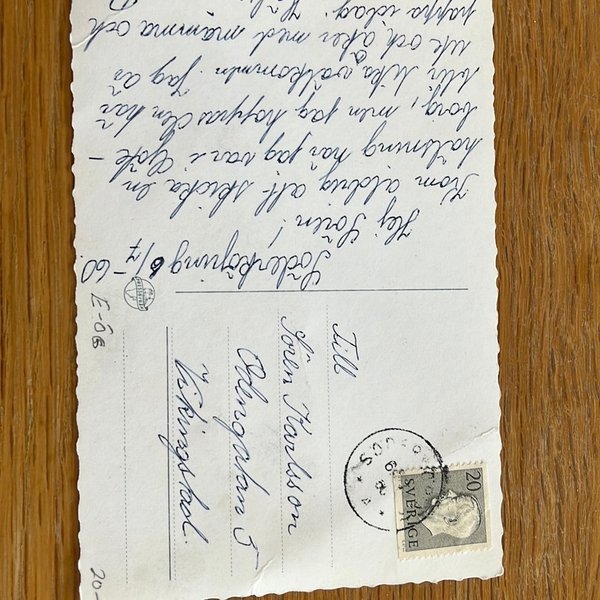 Söderköping 6/7 -60.
Hej Sören!
Kom aldrig att skicka en
hälsning när jag var i Göte-
borg, men jag hoppas den här
blir lika välkommen. Jag är
ute och åker med mamma och
pappa idag.
E-ÖG
Till
Sören Karlsson
Odengatan 5
Vikingstad.
20
SVERIGE
20-